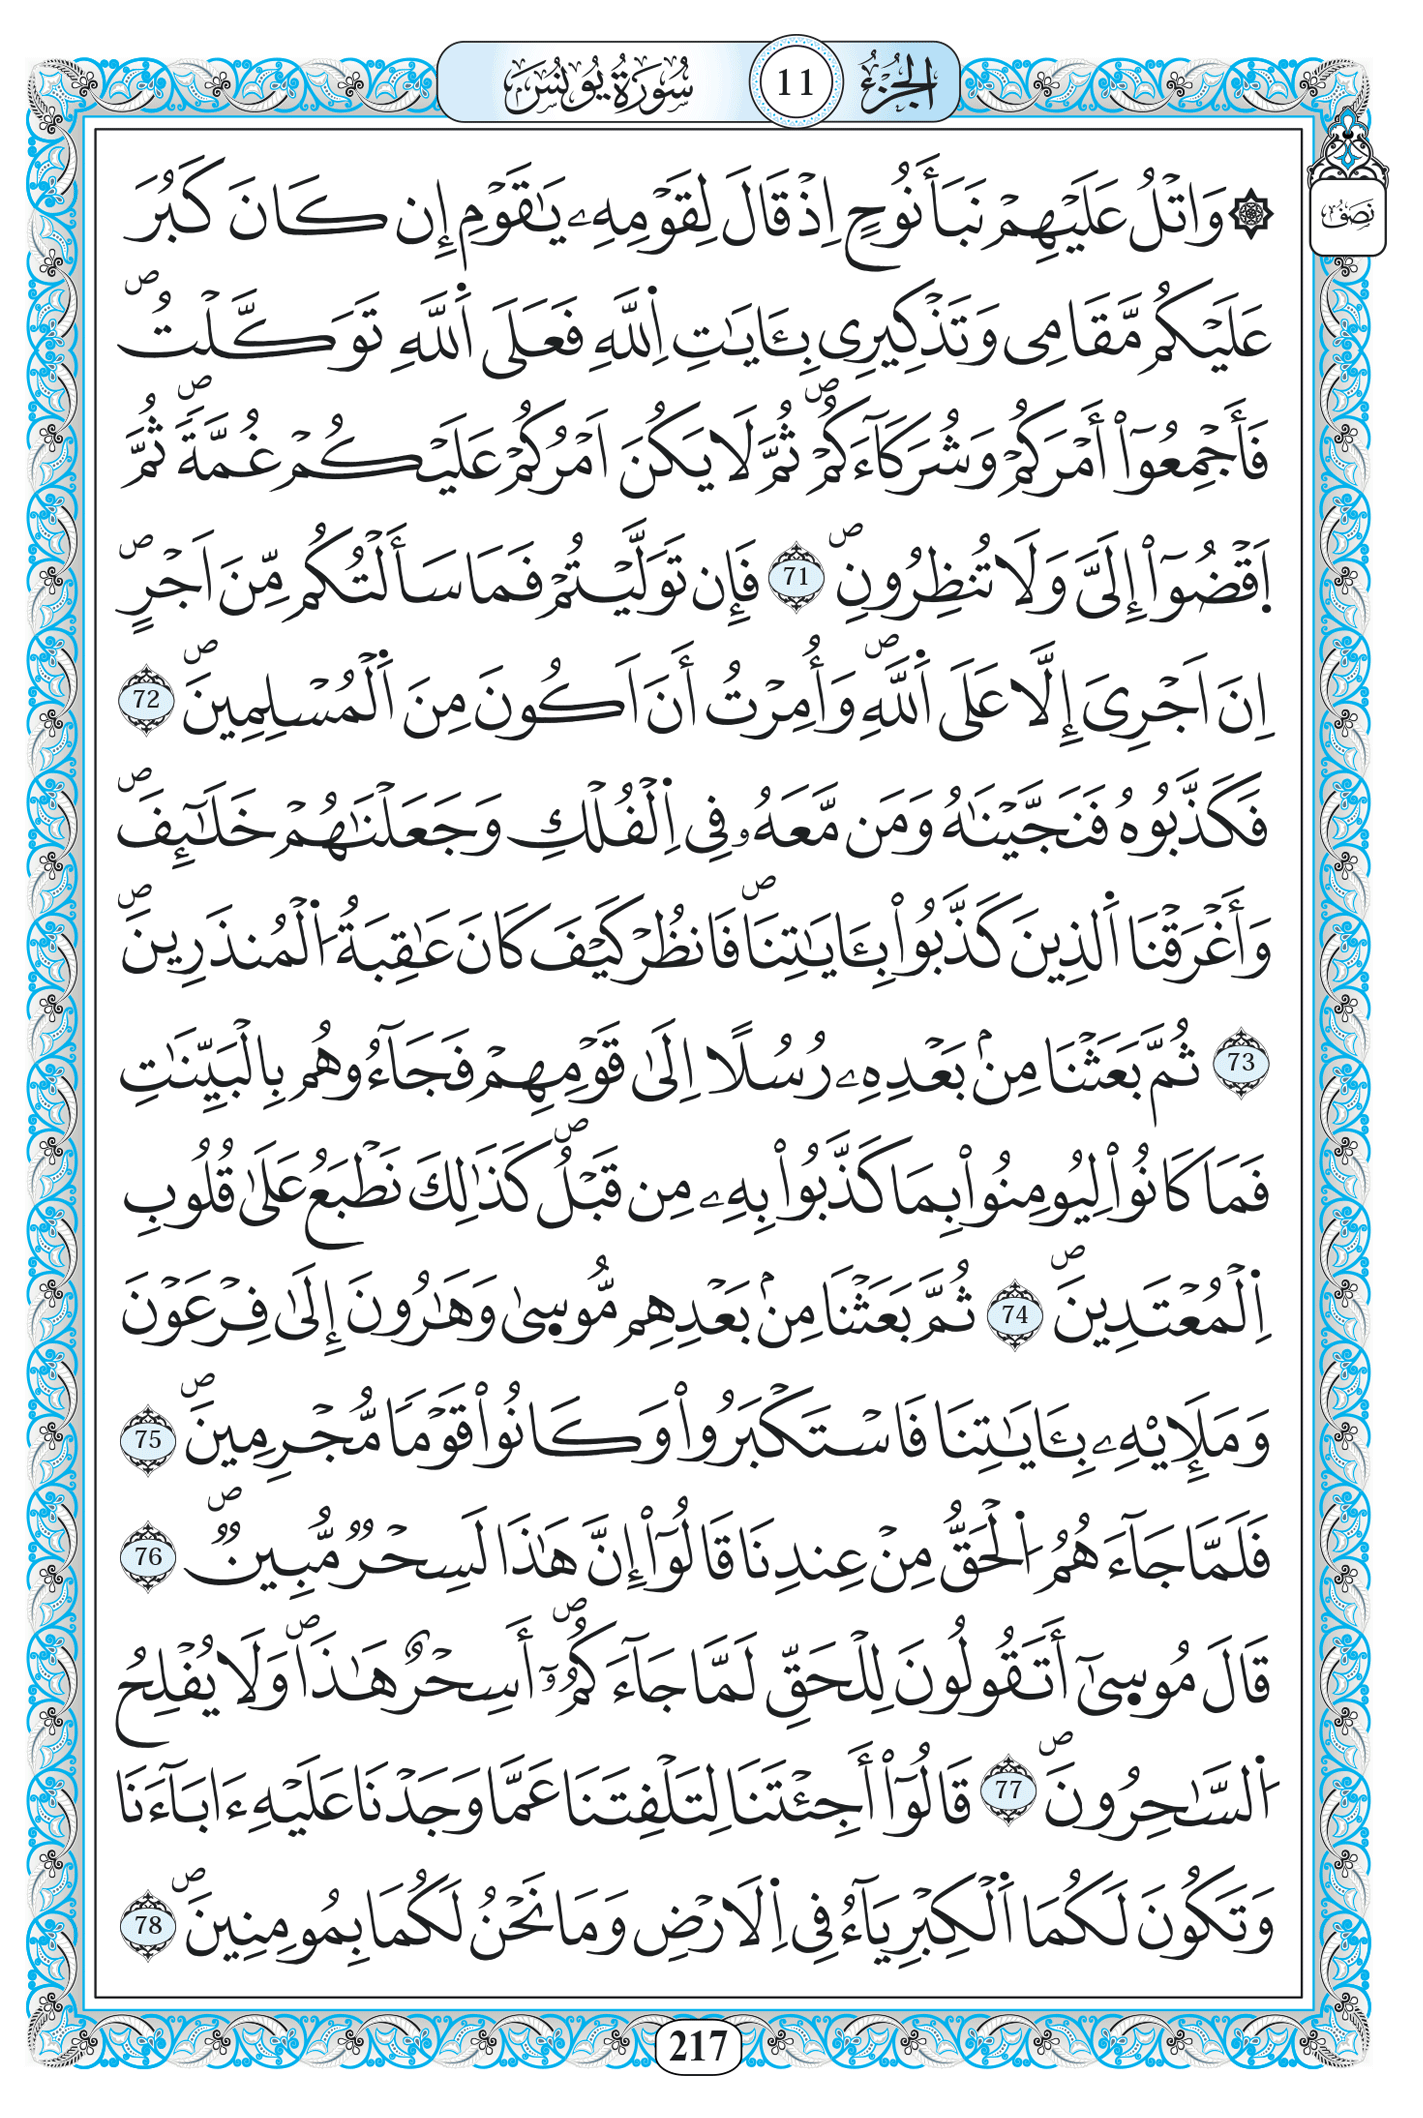 الجزء 11 سورة يونس
نصف
۞ وَاتْلُ عَلَيْهِمْ نَبَأَ نُوحٍ اِذْ قَالَ لِقَوْمِهِۦ يَٰقَوْمِ إِن كَانَ كَبُرَ
عَلَيْكُم مَّقَامِى وَتَذْكِيرِى بِـَٔايَٰتِ اِ۬للَّهِ فَعَلَى اَ۬للَّهِ تَوَكَّلْتُ ص
فَأَجْمِعُوٓا۟ أَمْرَكُمْ وَشُرَكَآءَكُمْ ص ثُمَّ لَا يَكُنَ اَمْرُكُمْ عَلَيْكُمْ غُمَّةً ص ثُمَّ
اَ۪قْضُوٓا۟ إِلَىَّ وَلَا تُنظِرُونِ ص 71 فَإِن تَوَلَّيْتُمْ فَمَا سَأَلْتُكُم مِّنَ اَجْرٍ ص
اِنَ اَجْرِىَ إِلَّا عَلَى اَ۬للَّهِ ص وَأُمِرْتُ أَنَ اَكُونَ مِنَ اَ۬لْمُسْلِمِينَ ص 72
فَكَذَّبُوهُ فَنَجَّيْنَٰهُ وَمَن مَّعَهُۥ فِى اِ۬لْفُلْكِ وَجَعَلْنَٰهُمْ خَلَٰٓئِفَ ص
وَأَغْرَقْنَا اَ۬لذِينَ كَذَّبُوا۟ بِـَٔايَٰتِنَا ص فَانظُرْ كَيْفَ كَانَ عَٰقِبَةُ اُ۬لْمُنذَرِينَ ص
73 ثُمَّ بَعَثْنَا مِنۢ بَعْدِهِۦ رُسُلًا اِلَىٰ قَوْمِهِمْ فَجَآءُوهُم بِالْبَيِّنَٰتِ
فَمَا كَانُوا۟ لِيُومِنُوا۟ بِمَا كَذَّبُوا۟ بِهِۦ مِن قَبْلُ ص كَذَٰلِكَ نَطْبَعُ عَلَىٰ قُلُوبِ
اِ۬لْمُعْتَدِينَ ص 74 ثُمَّ بَعَثْنَا مِنۢ بَعْدِهِم مُّوسىٰ وَهَٰرُونَ إِلَىٰ فِرْعَوْنَ
وَمَلَإِيْهِۦ بِـَٔايَٰتِنَا فَاسْتَكْبَرُوا۟ وَكَانُوا۟ قَوْمًا مُّجْرِمِينَ ص 75
فَلَمَّا جَآءَهُمُ اُ۬لْحَقُّ مِنْ عِندِنَا قَالُوٓا۟ إِنَّ هَٰذَا لَسِحْرٌ مُّبِينٌ ص 76
قَالَ مُوسىٰٓ أَتَقُولُونَ لِلْحَقِّ لَمَّا جَآءَكُمُۥٓ ص أَسِحْرٌ هَٰذَا ص وَلَا يُفْلِحُ
اُ۬لسَّٰحِرُونَ ص 77 قَالُوٓا۟ أَجِئْتَنَا لِتَلْفِتَنَا عَمَّا وَجَدْنَا عَلَيْهِ ءَابَآءَنَا
وَتَكُونَ لَكُمَا اَ۬لْكِبْرِيَآءُ فِى اِ۬لَارْضِ وَمَا نَحْنُ لَكُمَا بِمُومِنِينَ ص 78
217